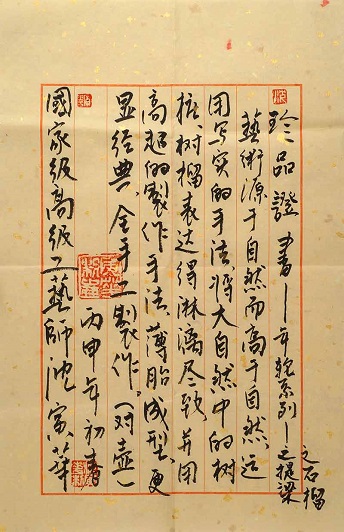 珍品證書——系列——之提梁
之石榴
藝術源于自然而高于自然，运
用写实的手法，将大自然中的树
桩、树榴表达得淋漓尽致，并用
高超的製作手法，薄胎成型，更
显经典，全手工製作。（对壶）
丙申年初春
國家级高级工藝師沈寅華